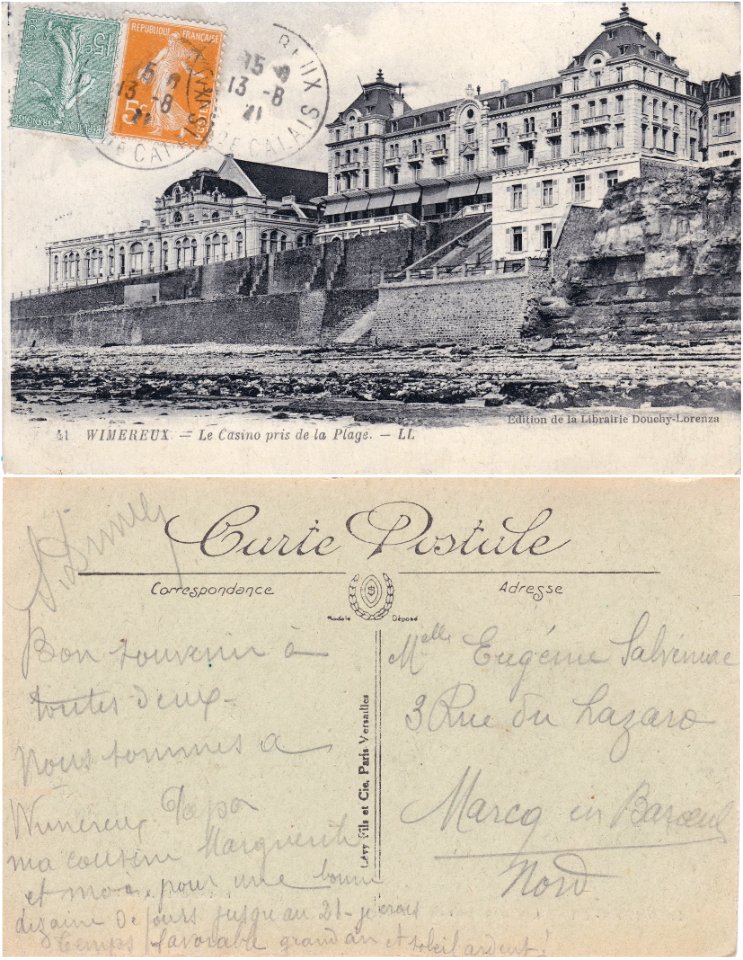 15c
REPUBLIQUE FRANÇAISE
5c
POSTES
15
13 - 8
21
PAS DE CALAIS
15
13 - 8
21
PAS DE CALAIS
Edition de la Librairie Douchy-Lorenza
41 WIMEREUX - Le Casino pris de la Plage. - LL
Carte Postale
Correspondance
Adresse
Modèle Déposé
Bon souvenir à
toutes deux -
Nous sommes a
Wimereux Papa
ma cousine Marguerite
et moi, pour une bonne
dizaine de jours jusqu au 21 - je crois
temps favorable grand air et soleil ardent!
Lévy Fils et Cie, Paris-Versailles
Melle Eugénie
3 Rue du Lazaro
Marcq en Baroeul
Nord